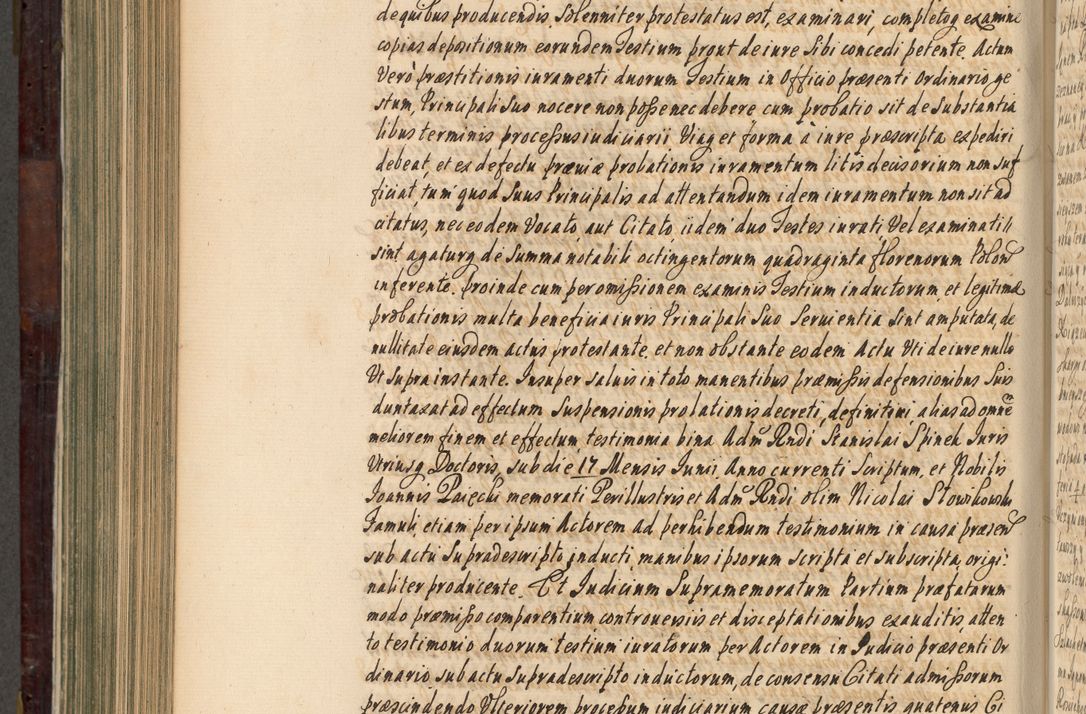 de quibus producendis Solenniter protestatus est, examinari, completoq examine
copias depositionum eorundem Testium prout de iure Sibi concedi petente. Actum
Vero præstitionis iuramenti duorum Testium in Officio præsenti Ordinario ge
stum, Principali Suo nocere non posse nec debere, cum probatio sit de Substantia
libus terminis processus iudiciarii Viaq et forma à iure præscripta expediri
debeat, et ex defectu præuiæ probationis iuramentum litis decisorium non suf
ficiat, tum quod Suus Principalis ad attentandum idem iuramentum non sit ad
citatus, nec eodem Vocato, aut Citato, iidem duo Testes iurati Vel examinati
sint agaturq de Summa notabili octingentorum quadraginta florenorum Polon
inferente. Proinde cum per omissionem examinis Testium inductorum et legitimæ
probationis multa beneficia iuris Principali Suo Seruientia Sint amputata, de
nullitate eiusdem actus protestante, et non obstante eodem Actu Uti de iure nullo
Ut Supra instante. Insuper saluis in toto manentibus præmissis defensionibus Suis
duntaxat ad effectum Suspensionis prolationis decreti, definitiui alias ad omnem
meliorem finem et effectum, testimonia bina Adm Rndi Stanislai Spinek Iuris
Utriusq Doctoris, sub die 17 Mensis Iunii Anno currenti Scriptum, et Nobilis
Ioannis Paięcki memorati Perillustris et Adm Rndi olim Nicolai Słowikowski
Famuli, etiam per ipsum Actorem ad perhibendum testimonium in causa præsen
sub actu Supradescripto inducti, manibus ipsorum scripta et subscripta, origi
naliter producente. Et Iudicium Supramemoratum Partium præfatarum
modo præmisso comparentium controuersiis et disceptationibus exauditis, atten
to testimonio duorum testium iuratorum per Actorem in Iudicio præsenti Or
dinario sub actu Supradescripto inductorum, de consensu Citati admissorum
præscindendo Ulteriorem processum iudiciarium causæ præsentis quatenus Ci